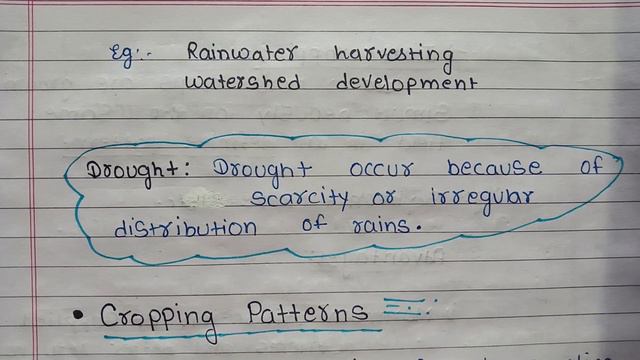 Eg:- Rainwater harvesting
watershed development
Drought: Drought occur because of
scarcity or irregular
distribution of rains.
• Cropping Patterns